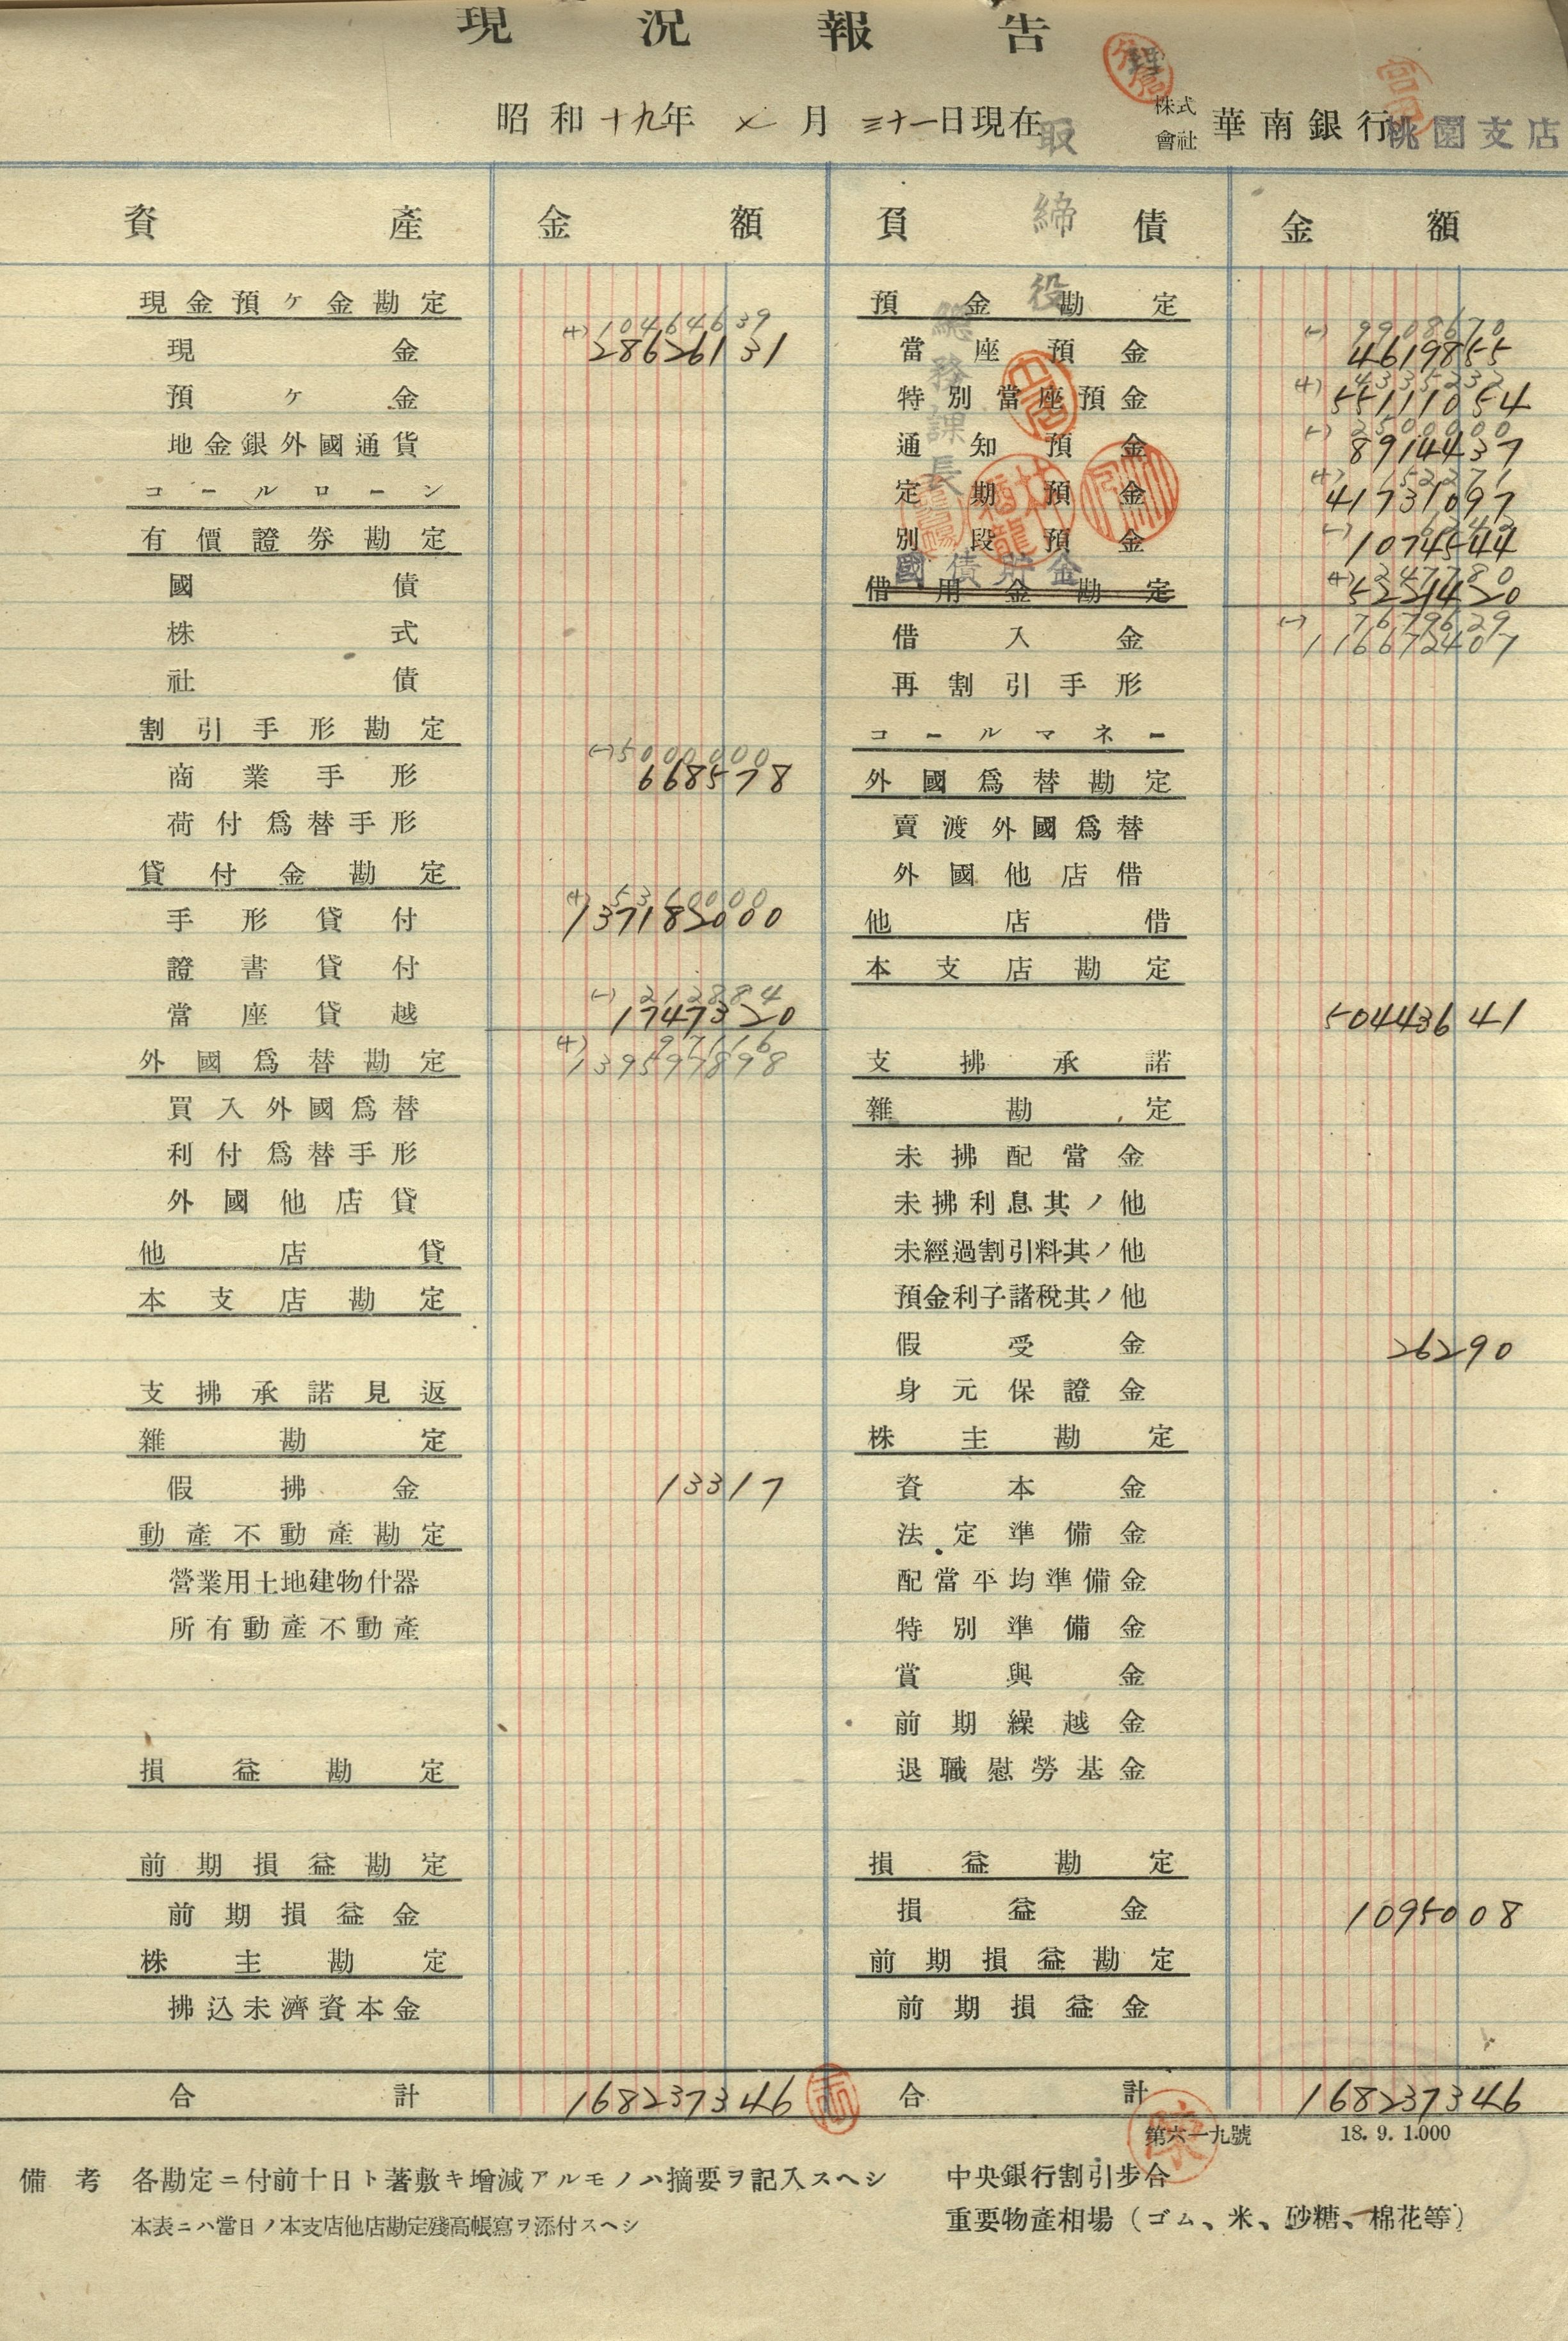 現況報告
昭和十九年七月三十一日現在 株式會社 華南銀行桃園支店
取締役
總務課長
資產 金額 負債 金額
現金預ヶ金勘定 預金勘定
(+) 10464639 (-) 9908670
現金 28626131 當座預金 4619855
(+) 4335232
預ヶ金 特別當座預金 55111054
(-) 2500000
地金銀外國通貨 通知預金 8914437
(+) 152271
コールローン 定期預金 41731097
(-) 6242
有價證券勘定 別段預金 1074544
國債貯金 (+) 247780
國債 借用金勘定 5221420
(-) 7679629
株式 借入金 116672407
社債 再割引手形
割引手形勘定 コールマネー
(-) 5000000
商業手形 668578 外國爲替勘定
荷付爲替手形 賣渡外國爲替
貸付金勘定 外國他店借
(+) 5310000
手形貸付 137182000 他店借
證書貸付 本支店勘定
(-) 212884
當座貸越 1747320 50443641
(+) 97116
外國爲替勘定 139597898 支拂承諾
買入外國爲替 雜勘定
利付爲替手形 未拂配當金
外國他店貸 未拂利息其ノ他
他店貸 未經過割引料其ノ他
本支店勘定 預金利子諸稅其ノ他
假受金 26290
支拂承諾見返 身元保證金
雜勘定 株主勘定
假拂金 13317 資本金
動產不動產勘定 法定準備金
營業用土地建物什器 配當平均準備金
所有動產不動產 特別準備金
賞與金
前期繰越金
損益勘定 退職慰勞基金
前期損益勘定 損益勘定
前期損益金 損益金 1095008
株主勘定 前期損益勘定
拂込未濟資本金 前期損益金
合計 168237346 合計 168237346
第六一九號 18. 9. 1.000
備考 各勘定ニ付前十日ト著敷キ增減アルモノハ摘要ヲ記入スヘシ 中央銀行割引步合
本表ニハ當日ノ本支店他店勘定殘高帳寫ヲ添付スヘシ 重要物產相場（ゴム、米、砂糖、棉花等）